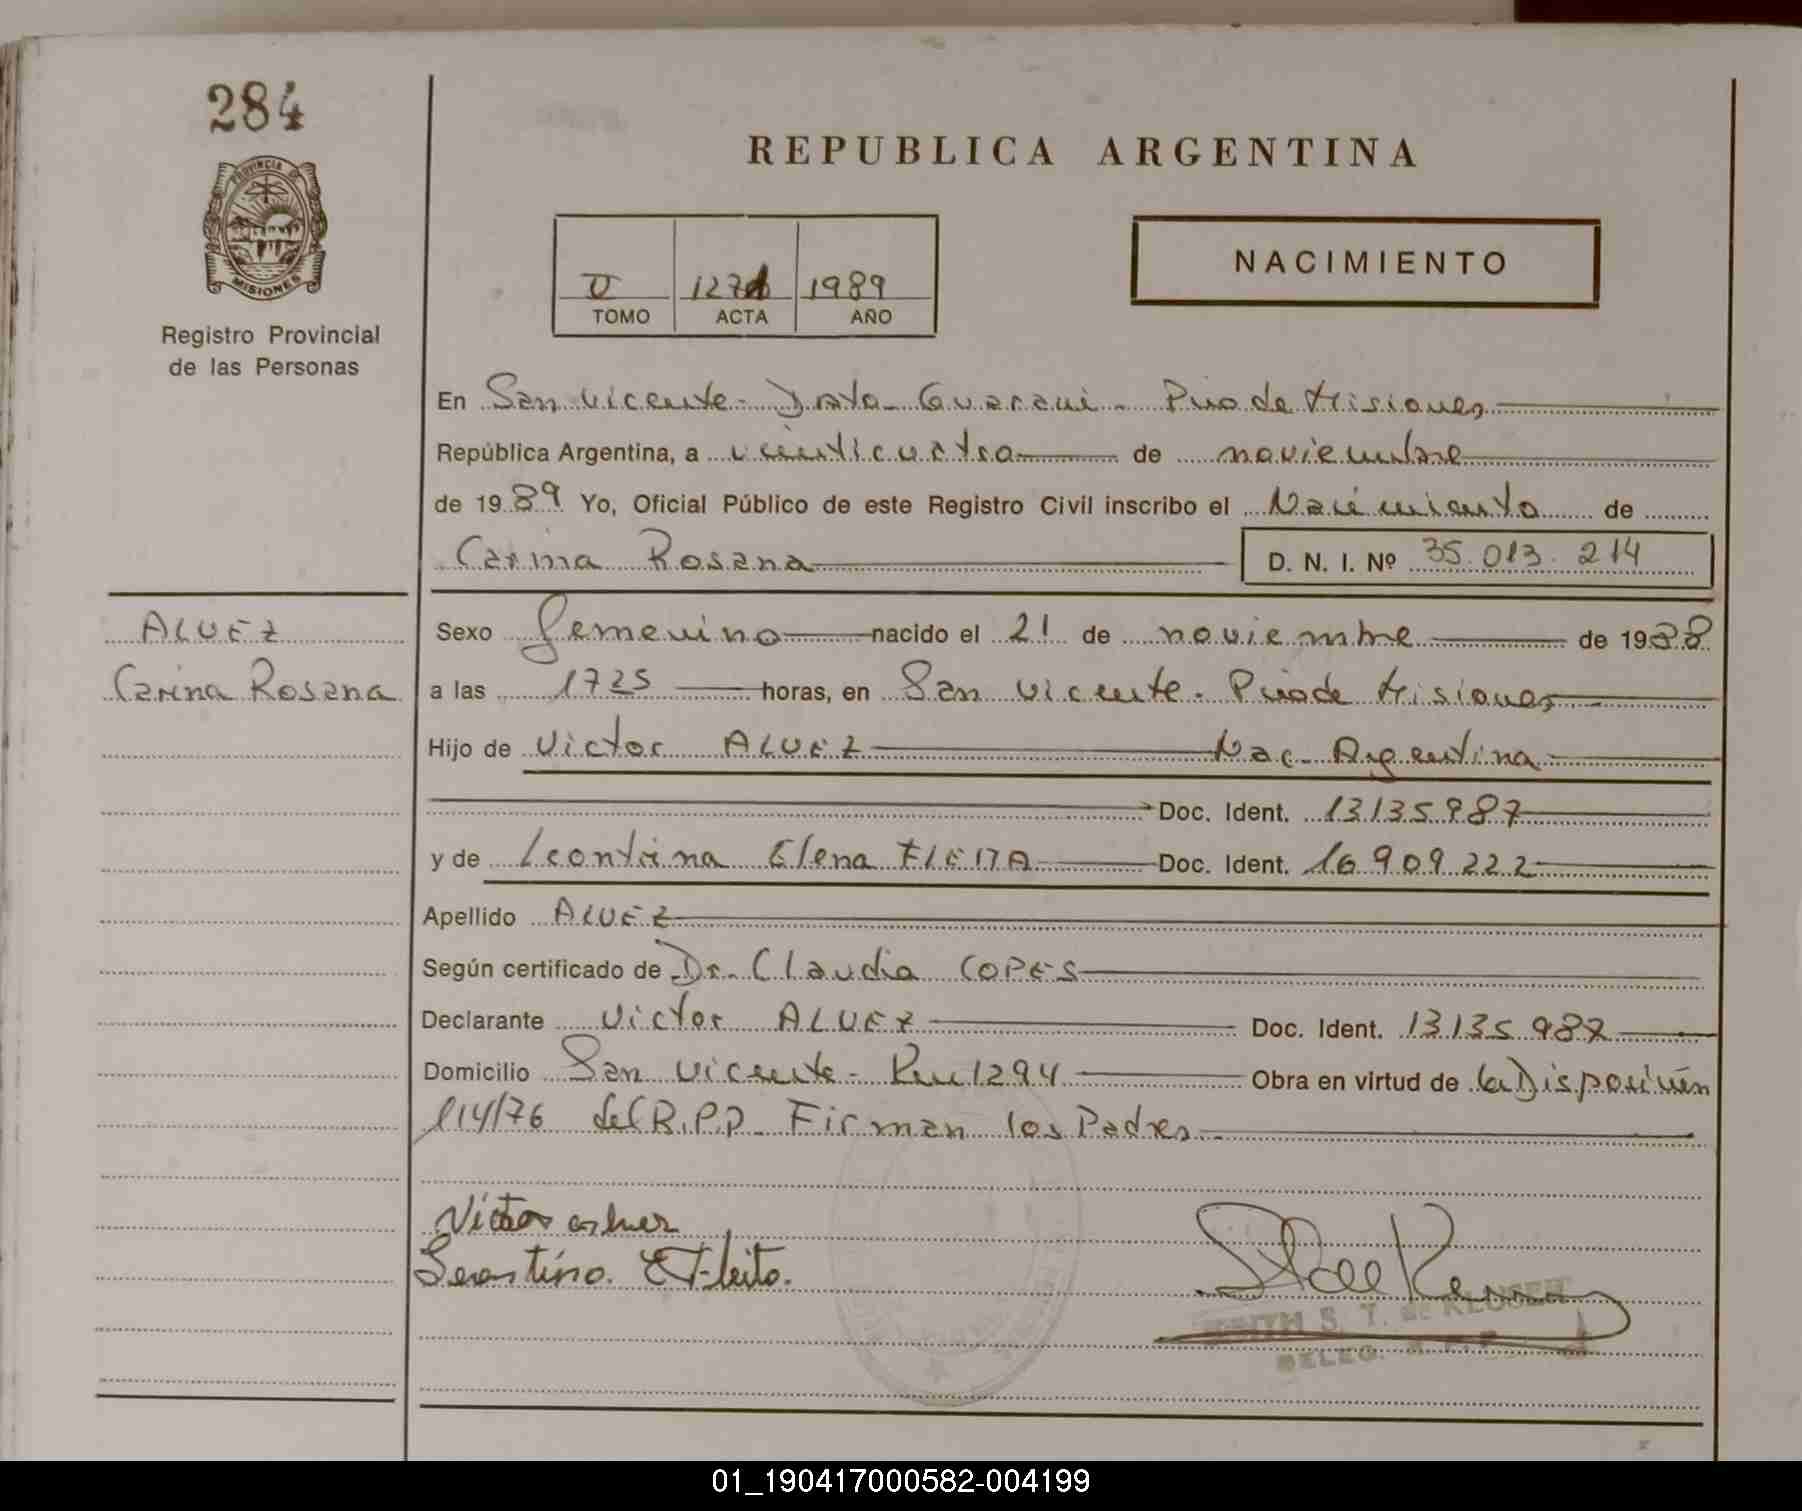 284
REPUBLICA ARGENTINA
PROVINCIA D
MISIONES
Registro Provincial
de las Personas
NACIMIENTO
1989
TOMO ACTA AÑO
En San Vicente - Dpto Guarani - Pcia de Misiones
República Argentina, a veinticuatro de noviembre
de 1989 Yo, Oficial Público de este Registro Civil inscribo el Nacimiento de
Carina Rosana D. N. I. Nº 35.013.214
ALVEZ
Carina Rosana
Sexo femenino nacido el 21 de noviembre de 1988
a las 1725 horas, en San Vicente - Pcia de Misiones
Hijo de Victor ALVEZ Nac. Argentina
Doc. Ident. 13135987
y de Leontina Elena Doc. Ident. 16909222
Apellido ALVEZ
Según certificado de Dr. Claudia COPES
Declarante Victor ALVEZ Doc. Ident. 13135987
Domicilio San Vicente - Km 1294 Obra en virtud de la Disposición
114/76 del R.P.P. Firman los Padres
S. T. de KLUSER
DELEG. R. P. P.
01_190417000582-004199